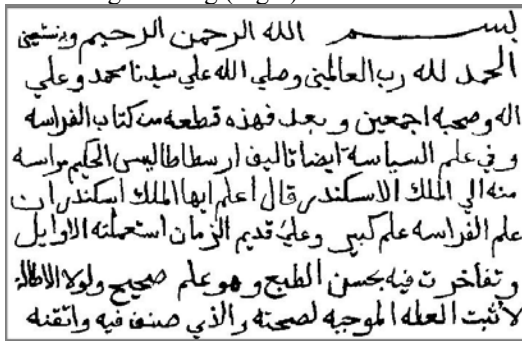 بسم الله الرحمن الرحيم
الحمد لله رب العالمين وصلي الله علي سيدنا محمد وعلي
اله وصحبه اجمعين وبعد فهذه قطعه من كتاب الفراسه
وفي علم السياسة ايضا تاليف ارسطاطاليس الحكيم مراسه
منه الي الملك الاسكندر قال أعلم ايها الملك اسكندر ان
علم الفراسه علم كبير وعلي قديم الزمان استعملته الاوايل
وتفاخرت فيه بحسن الطبع وهو علم صحيح ولولا الاطاله
لاثبت العله الموجبه لصحته والذي صنف فيه واتقنه